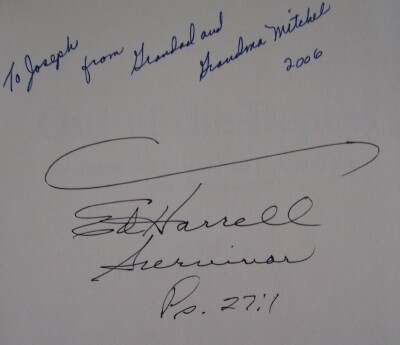 To Joseph
from Grandad and
Grandma Mitchel
2006
Ed Harrell
Survivor
Ps. 27:1